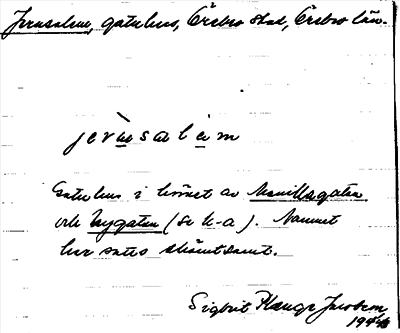 Jerusalem, gatuhus, Örebro stad, Örebro län.
jerùsalem
Gatuhus i hörnet av Manillagatan
och Nygatan (se k-a). Namnet
här satts skämtsamt.
Sigbrit Plænge Jacobson
1945